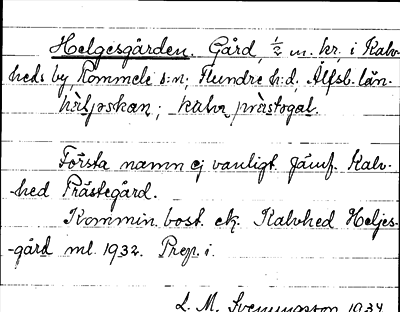 Helgesgården. Gård, 1/2 m. kr. i Kalv-
heds by, Rommele s:n; Flundre h:d, Älfsb. län.
hälјəskan; kalvə prästəgaḷ.
Första namn ej vanligt. Jämf. Kalv-
-hed Prästegård.
Kommin. bost. ek. Kalvhed Heljes-
-gård ml. 1932. Prep. i.
L. M. Svenungsson 1934